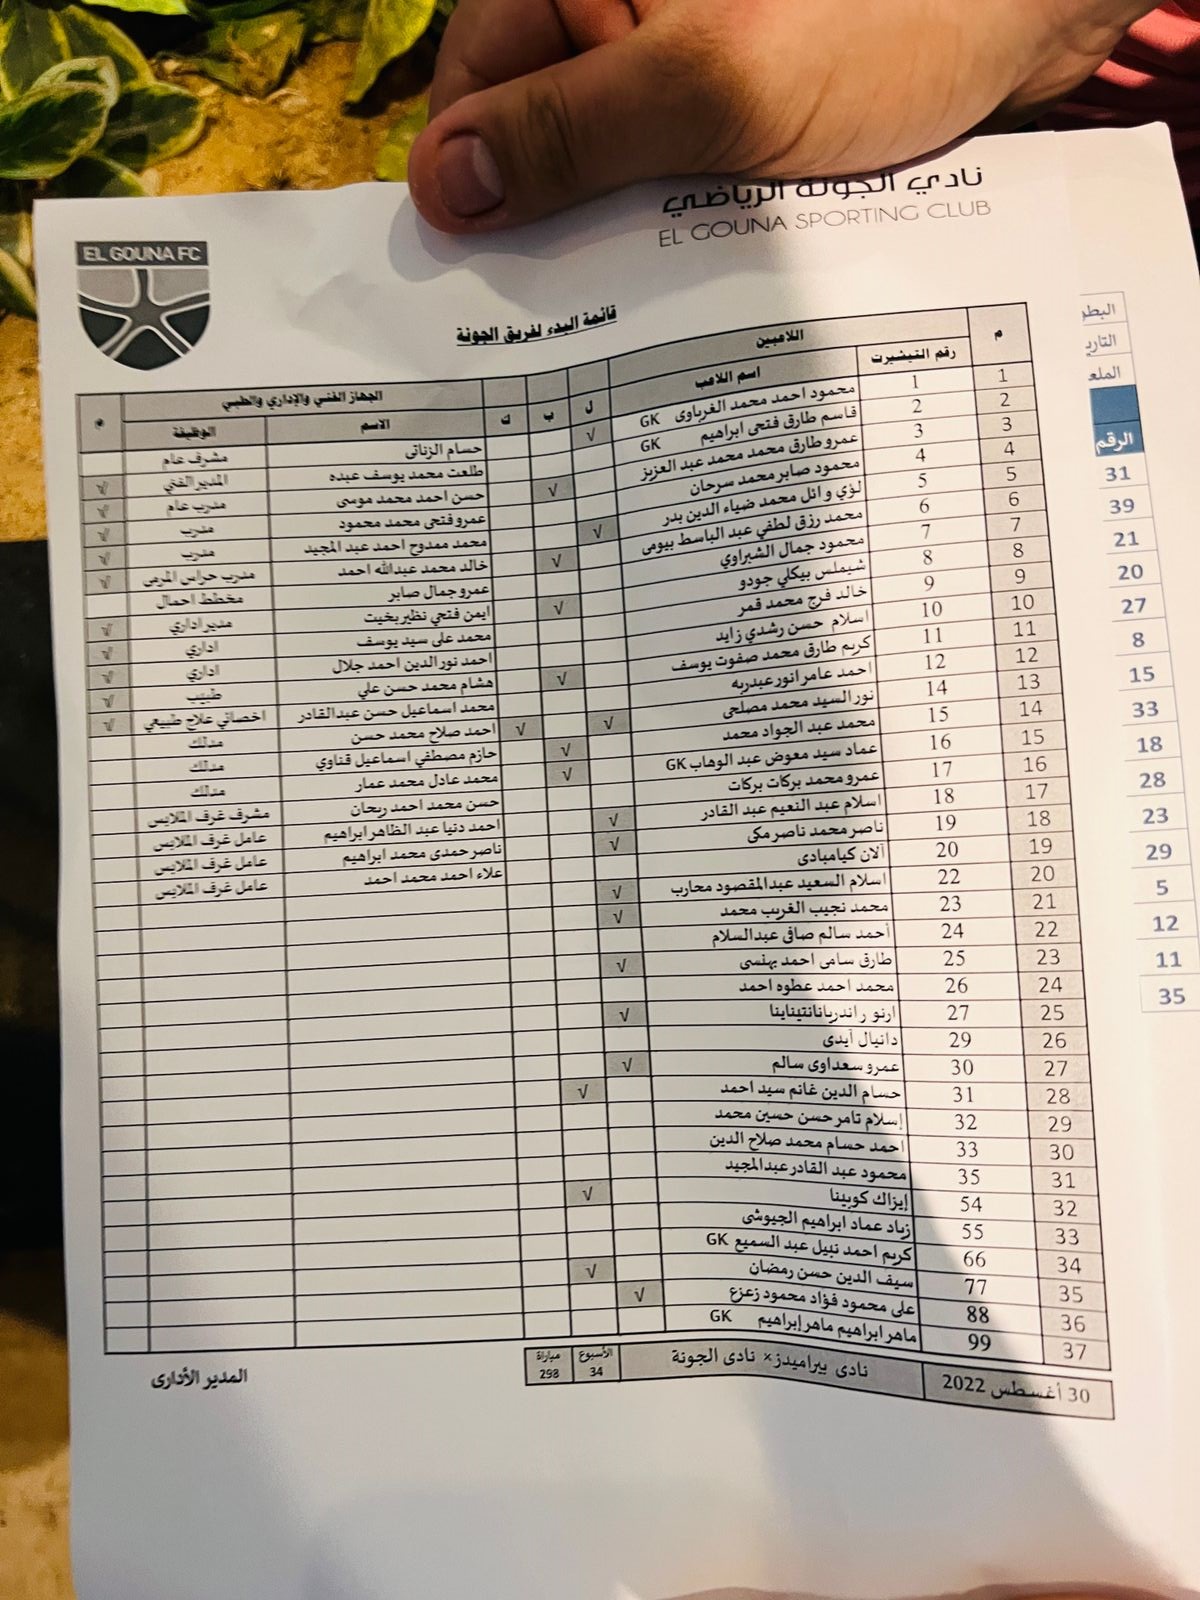 نادي الجونة الرياضي
EL GOUNA SPORTING CLUB
EL GOUNA FC
قائمة البدء لفريق الجونة
م اللاعبين ل ب ك الجهاز الفني والإداري والطبي م
رقم التيشيرت اسم اللاعب الاسم الوظيفة
1 1 محمود احمد محمد الغرباوى GK √ حسام الزناتى مشرف عام
2 2 قاسم طارق فتحى ابراهيم GK طلعت محمد يوسف عبده المدير الفني √
3 3 عمرو طارق محمد محمد عبد العزيز √ حسن احمد محمد موسى مدرب عام √
4 4 محمود صابر محمد سرحان عمرو فتحى محمد محمود مدرب √
5 5 لؤي وائل محمد ضياء الدين بدر √ محمد ممدوح احمد عبد المجيد مدرب √
6 6 محمد رزق لطفي عبد الباسط بيومى √ خالد محمد عبدالله احمد مدرب حراس المرمى √
7 7 محمود جمال الشبراوي عمرو جمال صابر مخطط احمال
8 8 شيملس بيكلي جودو √ ايمن فتحي نظير بخيت مدير اداري √
9 9 خالد فرج محمد قمر محمد على سيد يوسف اداري √
10 10 اسلام حسن رشدي زايد احمد نور الدين احمد جلال اداري √
11 11 كريم طارق محمد صفوت يوسف √ هشام محمد حسن علي طبيب √
12 12 احمد عامر انور عبدربه محمد اسماعيل حسن عبدالقادر اخصائي علاج طبيعي √
13 14 نور السيد محمد مصلحى √ √ احمد صلاح محمد حسن مدلك
14 15 محمد عبد الجواد محمد √ حازم مصطفي اسماعيل قناوي مدلك
15 16 عماد سيد معوض عبد الوهاب GK √ محمد عادل محمد عمار مدلك
16 17 عمرو محمد بركات بركات حسن محمد احمد ريحان مشرف غرف الملابس
17 18 اسلام عبد النعيم عبد القادر √ احمد دنيا عبد الظاهر ابراهيم عامل غرف الملابس
18 19 ناصر محمد ناصر مكى √ ناصر حمدى محمد ابراهيم عامل غرف الملابس
19 20 آلان كيامبادى علاء احمد محمد احمد عامل غرف الملابس
20 22 اسلام السعيد عبدالمقصود محارب √
21 23 محمد نجيب الغريب محمد √
22 24 أحمد سالم صافى عبدالسلام
23 25 طارق سامى احمد بهنسى √
24 26 محمد احمد عطوه احمد
25 27 ارنو راندريانانتيناينا √
26 29 دانيال أيدى
27 30 عمرو سعداوى سالم √
28 31 حسام الدين غانم سيد احمد √
29 32 إسلام تامر حسن حسين محمد
30 33 احمد حسام محمد صلاح الدين
31 35 محمود عبد القادر عبدالمجيد
32 54 إيزاك كوبينا √
33 55 زياد عماد ابراهيم الجيوشى
34 66 كريم احمد نبيل عبد السميع GK
35 77 سيف الدين حسن رمضان √
36 88 على محمود فؤاد محمود زعزع √
37 99 ماهر ابراهيم ماهر إبراهيم GK
30 أغسطس 2022 نادى بيراميدز× نادى الجونة الأسبوع 34 مباراة 298
المدير الأدارى
الرقم
31
39
21
20
27
8
15
33
18
28
23
29
5
12
11
35